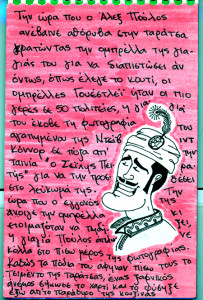 Την ώρα που ο Άλεξ Πούλος
ανέβαινε απόρυβα στην ταράτσα
κρατώντας την ομπρέλλα της για-
γιάς του για να διαπιστώσει αν
όντως, όπως έλεγε το κουτί, οι
ομπρέλλες Γουέστλεϊ ήταν οι πιο
γερές σε 50 πολιτείες, η για
του έκοβε τη φωτογραφία
αγαπημένου της Ντέιβ
Κόννορ σε πόζα απ'
ταινία "Ο Σεΐχης Περ
της" για να την προσ
στο λεύκωμά της.
ώρα που ο εγγονός
άνοιγε την ομπρέλλα
ετοιμαζόταν να πηδή
η γιαγιά Πούλος
κόλλα στο πίσω μέρος της φωτογραφίας.
καθώς τα πόδια του άφηναν πίσω τους το
τσιμέντο της ταράτσας, ένας ξαφνικός
άνεμος σήκωσε το χαρτί και το φύσηξε
έξω απ' το παράθυρο της κουζίνας